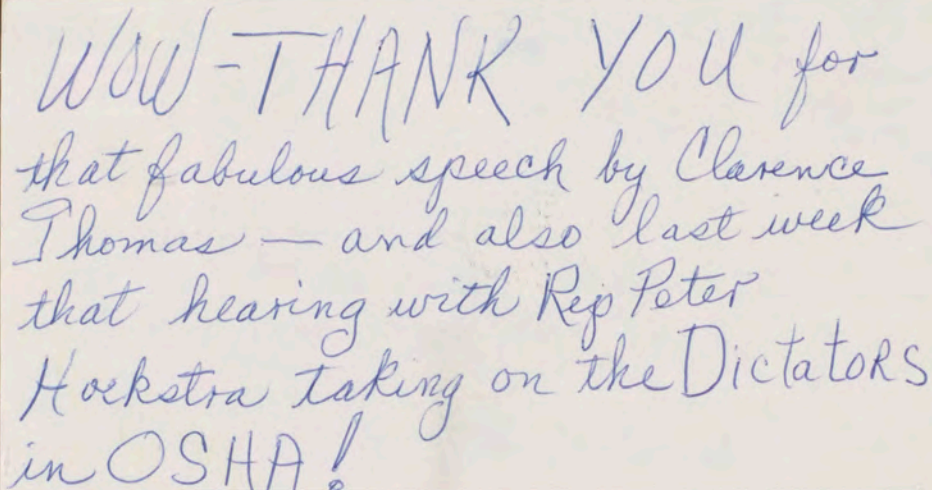 WOW-THANK YOU for
that fabulous speech by Clarence
Thomas — and also last week
that hearing with Rep Peter
Hoekstra taking on the Dictators
in OSHA!